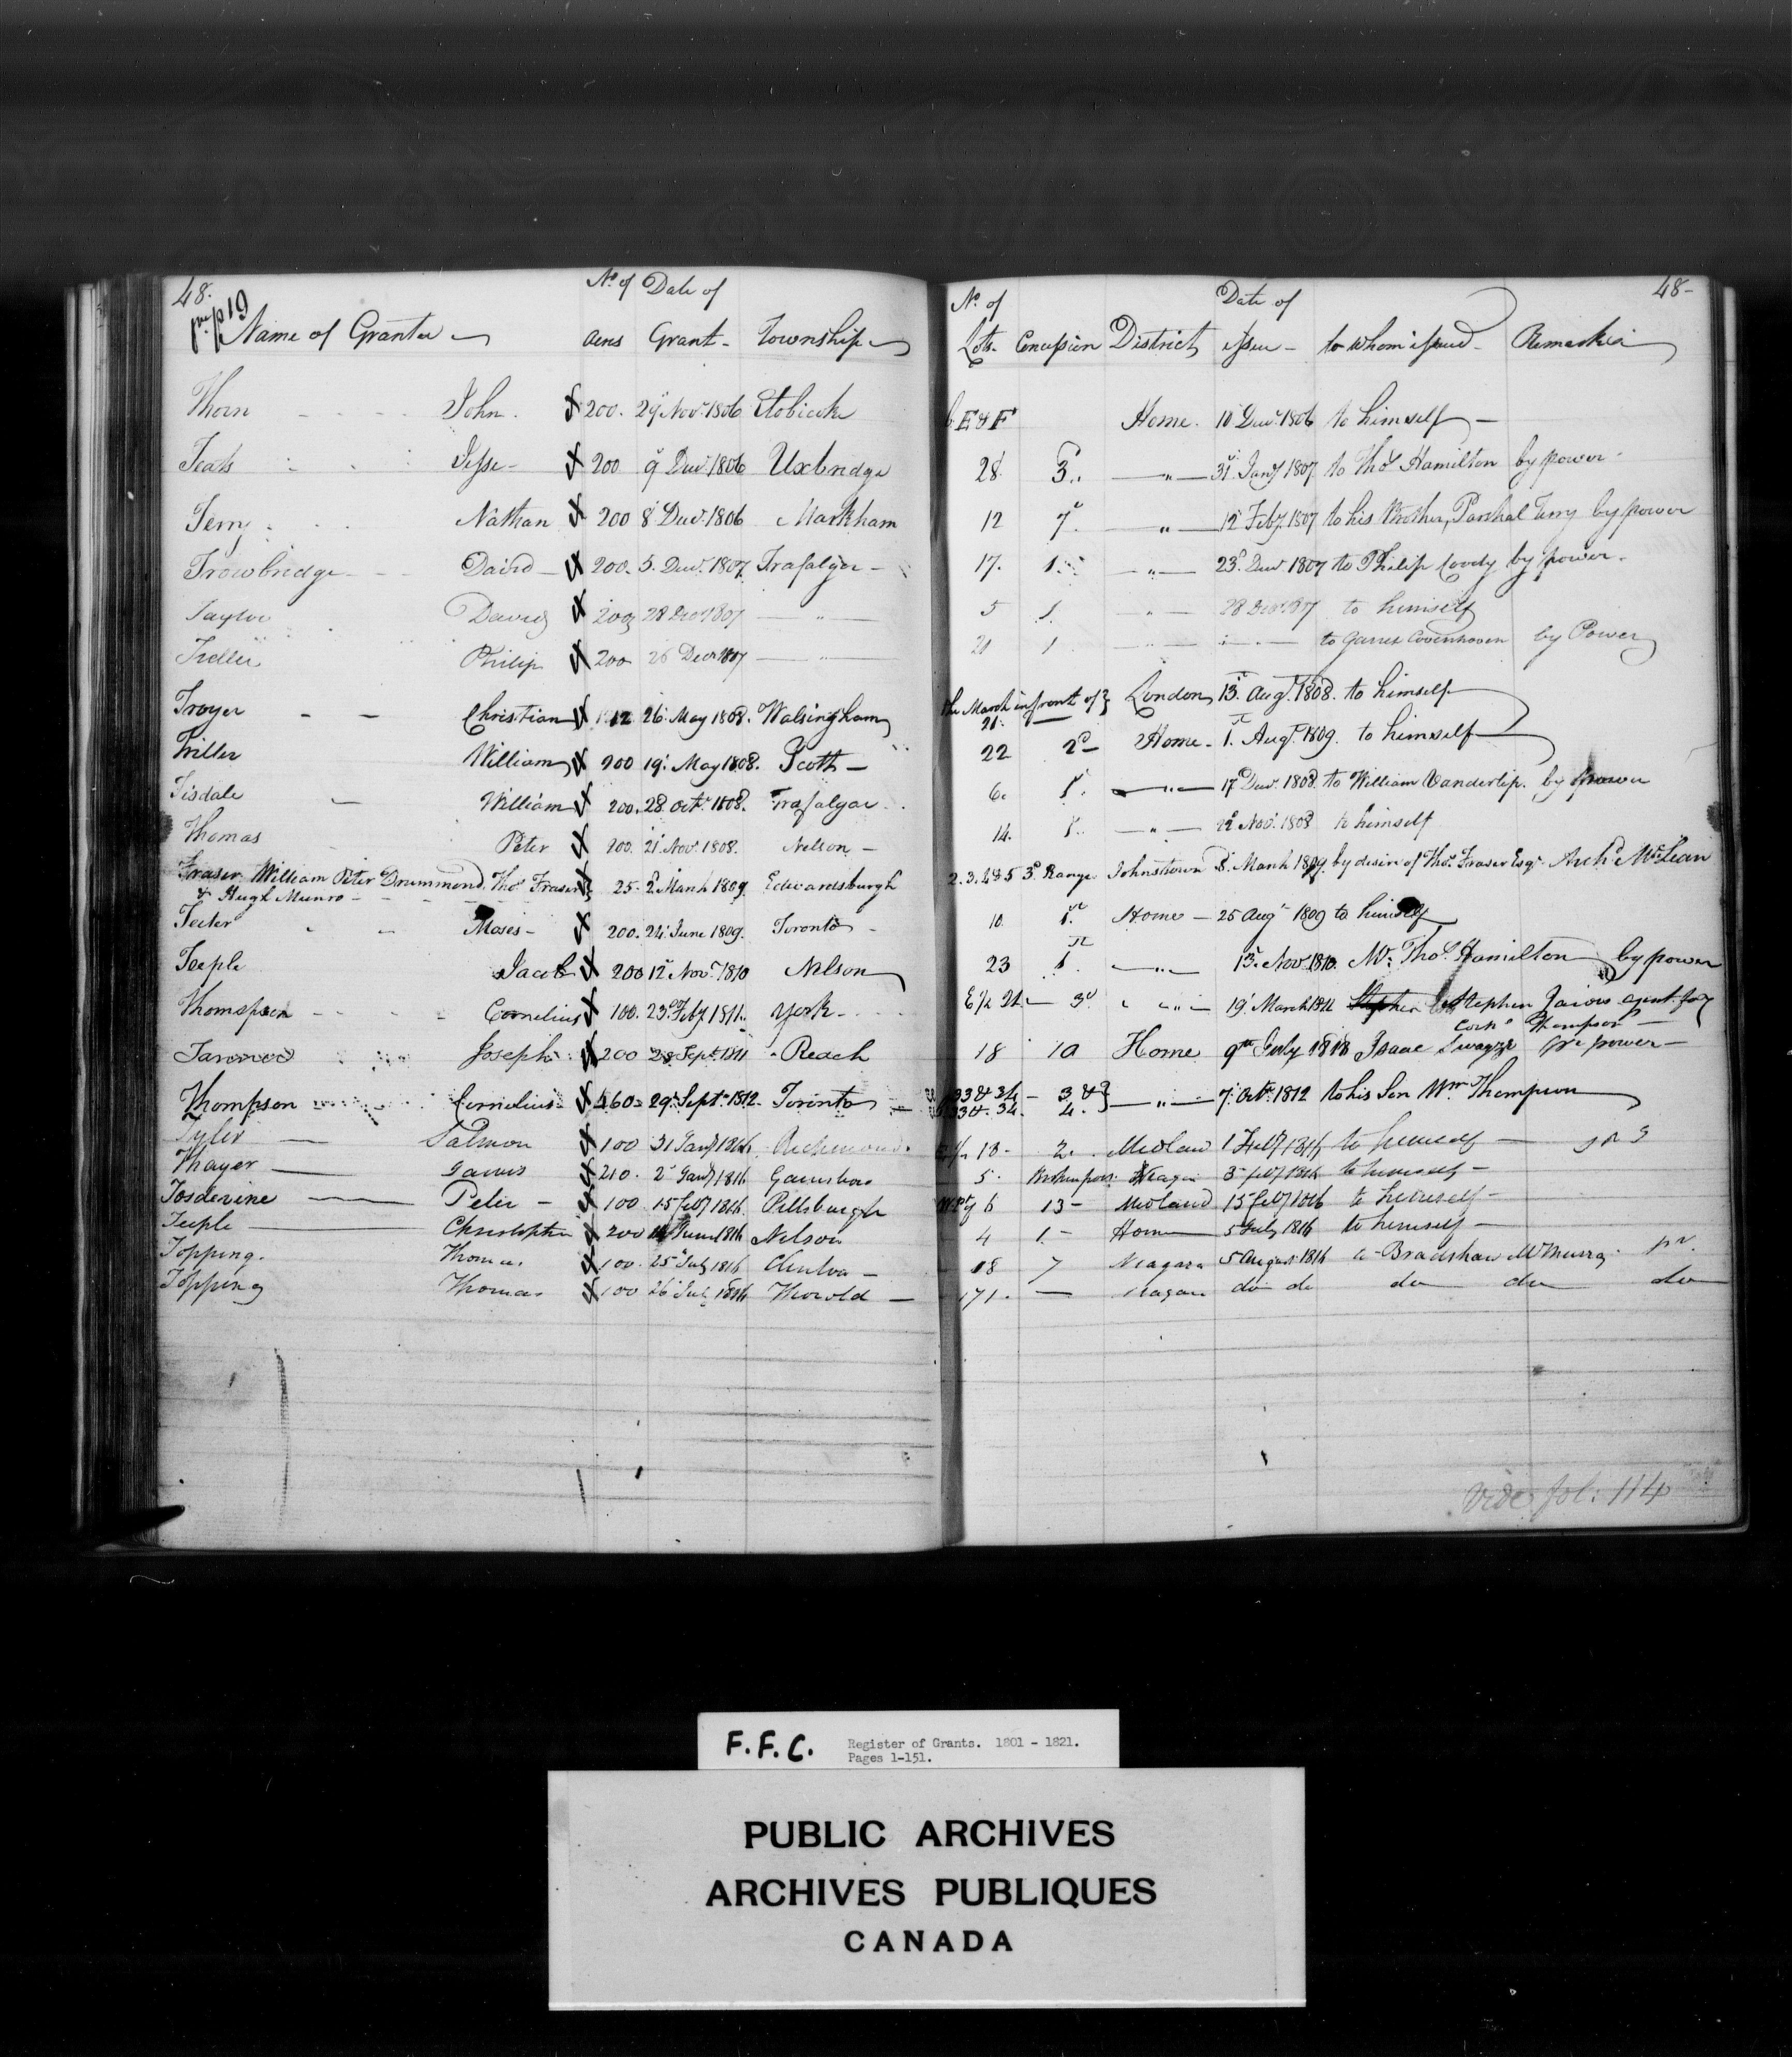 48. 48-
pre p 19
Name of Grantee No. of acres Date of Grant - Township No. of Lots - Concession District Date of issue - to whom issued - Remarks
Thorn John. 200. 29 Novr. 1806 Etobicoke E & F Home. 10 Decr. 1806 to himself -
Teats Jesse - 200 9 Decr. 1806 Uxbridge 28 3 " 31 Jany 1807 to Thos. Hamilton by power -
Terry Nathan 200 8 Decr. 1806 Markham 12 7 " 12 Feby 1807 to his Brother, Parshal Terry by power
Trowbridge David 200. 5. Decr. 1807 Trafalgar - 17. 1. " 23d. Decr 1807 to Philip Coody by power -
Taylor David 200 28 Decr 1807 " 5 1. " 28 Decr 1807 to himself
Teller Philip 200 26 Decr 1807 " 21 1 " to Garret Covenhoven by Power
Troyer - - Christian 12 26 May 1808. Walsingham the Marsh in front of 21. London 13 Augt. 1808. to himself
Triller William 200 19 May 1808. Scott - 22 2d - Home - 1. Augt. 1809. to himself
Tisdale - William 200. 28 Octr. 1808. Trafalgar 6. 1. " 17 Decr. 1808. to William Vanderlip. by power
Thomas Peter 200. 21 Novr. 1808. Nelson - 14. 1. " 22 Novr. 1808 to himself
Fraser William Peter Drummond, Thos Fraser 25 - 2 March 1809 Edwardsburgh 2. 3. 4 & 5 3d. Range Johnstown 8. March 1809. by desire of Thos. Fraser Esqr. Archd. McLean
& Hugh Munro -
Teeter Moses - 200. 24 June 1809. Toronto - 10. 1st. Home - 25 Augt 1809 to himself
Teeple Jacob 200 12 Novr. 1810 Nelson 23 1st " 13. Novr. 1810. Mr. Thos. Hamilton by power
Thompson Cornelius 100. 23d. Feby 1811. York - E 1/2 24 - 3d " 19 March 1811 Stephen Jarvis agent for
Corns. Thompson -
Joseph 200 28 Sept. 1811 Reach 18 10 Home 9th July 1818 Isaac Swayze pr. power -
Thompson Cornelius - 460 29 Sept. 1812 - Toronto 33 & 34 - 3 & " 7 Octr. 1812 to his Son Wm Thompson
33 & 34. 4.
Tyler Salmon 100 31 Jany 1816 Richmond 18 - 2. Midland 1 Feby 1816 to himself
Thayer James 210. 2 Jany 1816 Gainsboro 5. Broken front Niagara 3 Feby 1816 to himself -
Tosdevine Peter - 100 15 Feby 1816. Pittsburgh 6 13 - Midland 15 Feby 1816 to himself -
Teeple Christopher 200 June 1816 Nelson 4 1. - Home 5 July 1816 to himself -
Topping. Thomas 100. 25 July 1816 Clinton - 18 7 Niagara 5 August 1816 to Bradshaw McMurray pr.
Topping Thomas 100 26 July 1816 Thorold - 171. - Niagara do do do do do
Vide fol: 114
F.F.C. Register of Grants. 1801 - 1821.
Pages 1-151.
PUBLIC ARCHIVES
ARCHIVES PUBLIQUES
CANADA